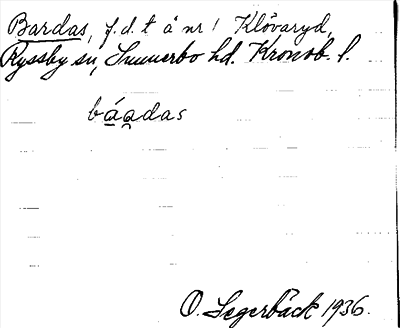 Bardas, f.d. t å nr 1 Klövaryd,
Ryssby sn, Sunnerbo hd. Kronob. l.
báadas
O. Segerbäck 1936.